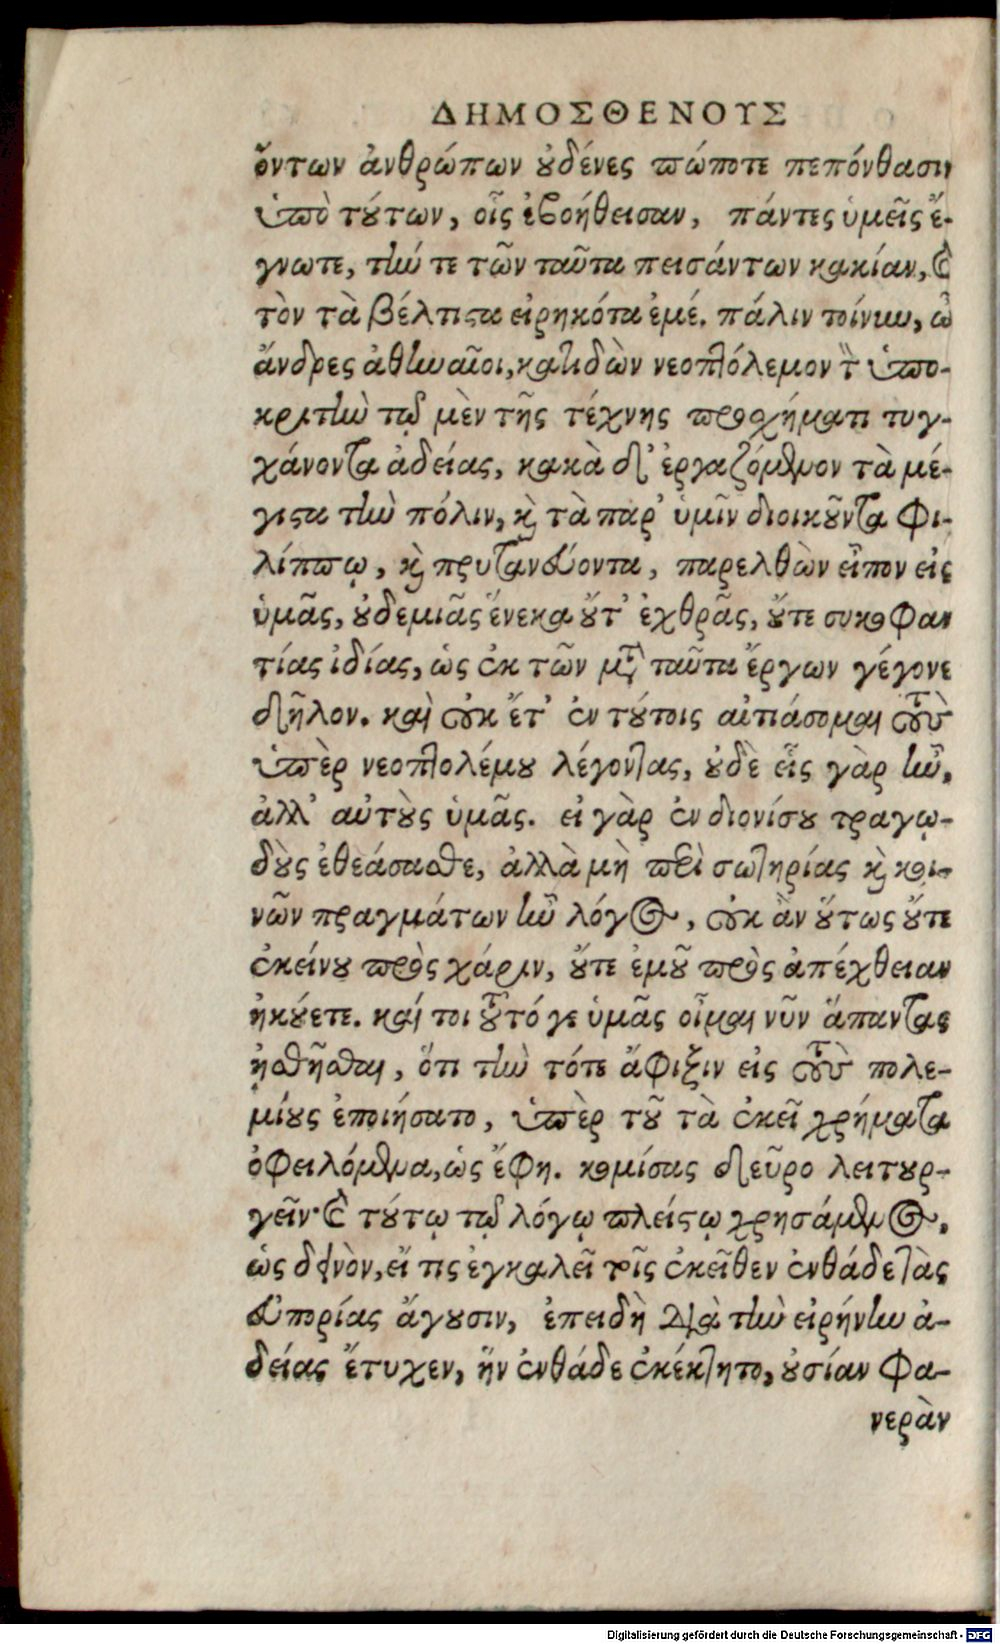 ΔΗΜΟΣΘΕΝΟΥΣ
ὄντων ἀνθρώπων οὐδένες πώποτε πεπόνθασιν
ὑπὸ τούτων, οἷς ἐβοήθεισαν, πάντες ὑμεῖς ἔ-
γνωτε, τήν τε τῶν ταῦτα πεισάντων κακίαν, καὶ
τὸν τὰ βέλτιστα εἰρηκότα ἐμέ. πάλιν τοίνυν, ὦ
ἄνδρες ἀθηναῖοι, κατιδὼν νεοπτόλεμον τὸν ὑπο-
κριτὴν τῷ μὲν τῆς τέχνης προσχήματι τυγ-
χάνοντα ἀδείας, κακὰ δ' ἐργαζόμενον τὰ μέ-
γιστα τὴν πόλιν, καὶ τὰ παρ' ὑμῖν διοικοῦντα Φι-
λίππῳ, καὶ πρυτανεύοντα, παρελθὼν εἶπον εἰς
ὑμᾶς, οὐδεμιᾶς ἕνεκα οὔτ' ἐχθρᾶς, οὔτε συκοφαν
τίας ἰδίας, ὡς ἐκ τῶν μετὰ ταῦτα ἔργων γέγονε
δῆλον. καὶ οὐκ ἔτ' ἐν τούτοις αἰτιάσομαι τοὺς
ὑπὲρ νεοπτολέμου λέγοντας, οὐδὲ εἷς γὰρ ἦν,
ἀλλ' αὐτοὺς ὑμᾶς. εἰ γὰρ ἐν διονίσου τραγῳ-
δοὺς ἐθεάσασθε, ἀλλὰ μὴ περὶ σωτηρίας καὶ κοι-
νῶν πραγμάτων ἦν λόγος, οὐκ ἂν οὕτως οὔτε
ἐκείνου πρὸς χάριν, οὔτε ἐμοῦ πρὸς ἀπέχθειαν
ἠκούετε. καί τοι τοῦτό γε ὑμᾶς οἶμαι νῦν ἅπαντας
ᾐσθῆσθαι, ὅτι τὴν τότε ἄφιξιν εἰς τοὺς πολε-
μίους ἐποιήσατο, ὑπὲρ τοῦ τὰ ἐκεῖ χρήματα
ὀφειλόμενα, ὡς ἔφη. κομίσας δεῦρο λειτουρ-
γεῖν· καὶ τούτῳ τῷ λόγῳ πλείστῳ χρησάμενος,
ὡς δεινὸν, εἴ τις ἐγκαλεῖ τοῖς ἐκεῖθεν ἐνθάδε τὰς
εὐπορίας ἄγουσιν, ἐπειδὴ διὰ τὴν εἰρήνην ἀ-
δείας ἔτυχεν, ἣν ἐνθάδε ἐκέκτητο, οὐσίαν Φα-
νερὰν
Digitalisierung gefördert durch die Deutsche Forschungsgemeinschaft - DFG